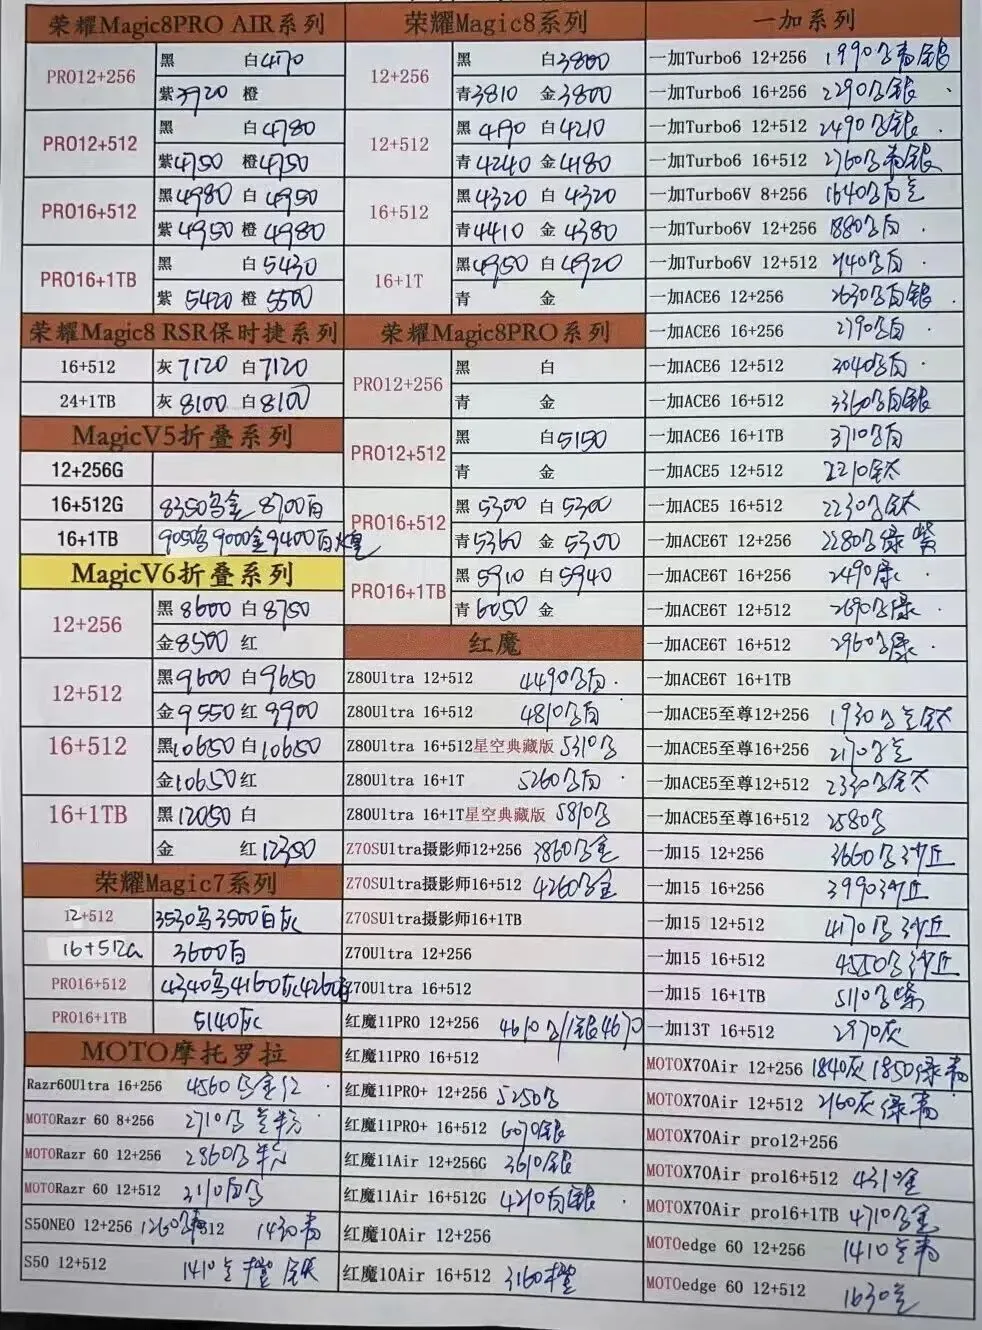 荣耀Magic8PRO AIR系列
PRO12+256 黑 白4170
紫3920 橙
PRO12+512 黑 白4780
紫4750 橙4750
PRO16+512 黑4980 白4950
紫4950 橙4980
PRO16+1TB 黑 白5430
紫5420 橙5500
荣耀Magic8 RSR保时捷系列
16+512 灰7120 白7120
24+1TB 灰8100 白8100
MagicV5折叠系列
12+256G
16+512G 8350乌金 8700白
16+1TB 9050乌9000金9400白
MagicV6折叠系列
12+256 黑8600 白8750
金8500 红
12+512 黑9600 白9650
金9550 红9900
16+512 黑10650 白10650
金10650 红
16+1TB 黑12050 白
金 红12350
荣耀Magic7系列
12+512 3530乌3500白灰
16+512G 3600白
PRO16+512 4340乌4160灰4260
PRO16+1TB 5140灰
MOTO摩托罗拉
Razr60Ultra 16+256 4560
MOTORazr 60 8+256 2710
MOTORazr 60 12+256 2860
MOTORazr 60 12+512 3110
S50NEO 12+256 1260 512 1430青
S50 12+512 1410 橙 银
荣耀Magic8系列
12+256 黑 白3800
青3810 金3800
12+512 黑4190 白4210
青4240 金4180
16+512 黑4320 白4320
青4410 金4380
16+1T 黑4950 白4920
青 金
荣耀Magic8PRO系列
PRO12+256 黑 白
青 金
PRO12+512 黑 白5150
青 金
PRO16+512 黑5300 白5300
青5360 金5300
PRO16+1TB 黑5910 白5940
青6050 金
红魔
Z80Ultra 12+512 4490
Z80Ultra 16+512 4810
Z80Ultra 16+512星空典藏版 5310
Z80Ultra 16+1T 5260
Z80Ultra 16+1T星空典藏版 5810
Z70SUltra摄影师12+256 3860
Z70SUltra摄影师16+512 4260
Z70SUltra摄影师16+1TB
Z70Ultra 12+256
Z70Ultra 16+512
红魔11PRO 12+256 4610 银4670
红魔11PRO 16+512
红魔11PRO+ 12+256 5250
红魔11PRO+ 16+512 6070银
红魔11Air 12+256G 3610银
红魔11Air 16+512G 4210白银
红魔10Air 12+256
红魔10Air 16+512 3160橙
一加系列
一加Turbo6 12+256 1990
一加Turbo6 16+256 2290
一加Turbo6 12+512 2490
一加Turbo6 16+512 2760
一加Turbo6V 8+256 1640
一加Turbo6V 12+256 1880
一加Turbo6V 12+512 2140
一加ACE6 12+256 2630
一加ACE6 16+256 2790
一加ACE6 12+512 3040
一加ACE6 16+512 3360
一加ACE6 16+1TB 3710
一加ACE5 12+512 2210钛
一加ACE5 16+512 2230钛
一加ACE6T 12+256 2280
一加ACE6T 16+256 2490
一加ACE6T 12+512 2690
一加ACE6T 16+512 2960
一加ACE6T 16+1TB
一加ACE5至尊12+256 1930
一加ACE5至尊16+256 2170
一加ACE5至尊12+512 2330
一加ACE5至尊16+512 2580
一加15 12+256 3660 沙丘
一加15 16+256 3990沙丘
一加15 12+512 4170 沙丘
一加15 16+512 4550 沙丘
一加15 16+1TB 5110
一加13T 16+512 2970灰
MOTOX70Air 12+256 1840灰 1850绿青
MOTOX70Air 12+512 2160灰绿青
MOTOX70Air pro12+256
MOTOX70Air pro16+512 4310金
MOTOX70Air pro16+1TB 4710
MOTOedge 60 12+256 1410
MOTOedge 60 12+512 1630